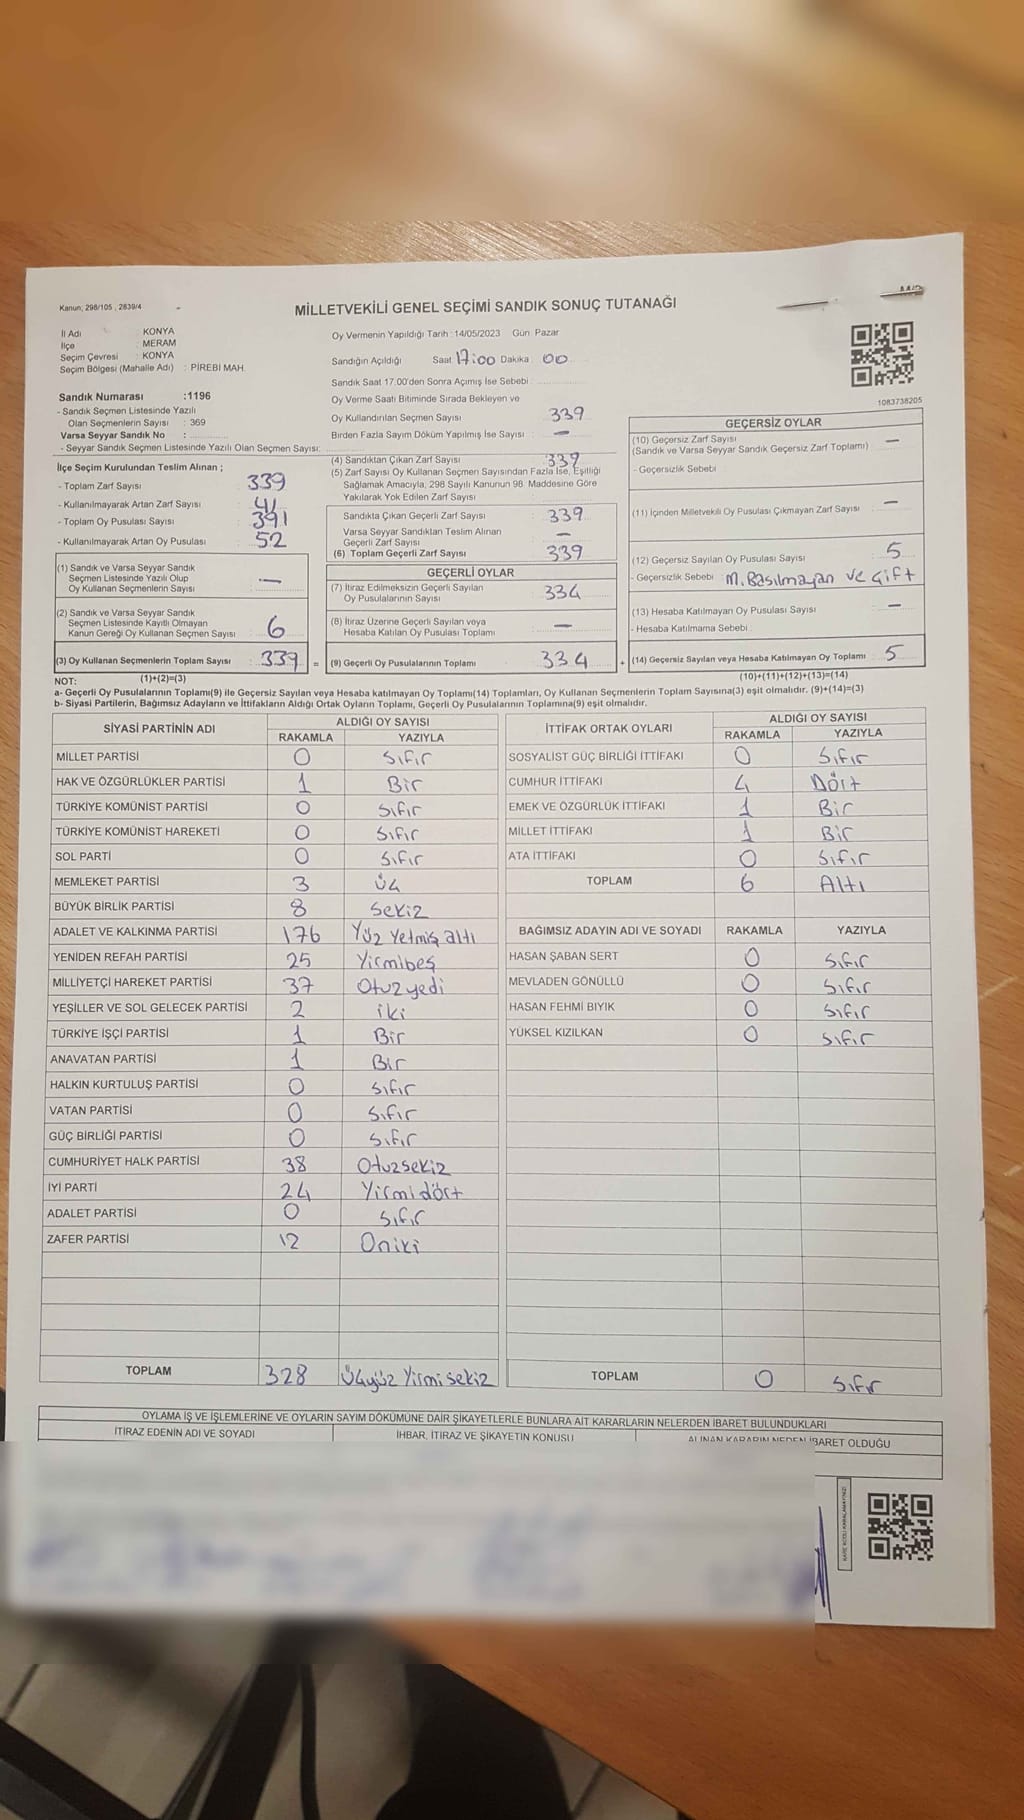 Kanun; 298/105 , 2839/4
MİLLETVEKİLİ GENEL SEÇİMİ SANDIK SONUÇ TUTANAĞI
İl Adı : KONYA
İlçe : MERAM
Seçim Çevresi : KONYA
Seçim Bölgesi (Mahalle Adı) : PİREBİ MAH.
Sandık Numarası :1196
- Sandık Seçmen Listesinde Yazılı
Olan Seçmenlerin Sayısı : 369
Varsa Seyyar Sandık No :
- Seyyar Sandık Seçmen Listesinde Yazılı Olan Seçmen Sayısı:
İlçe Seçim Kurulundan Teslim Alınan ;
- Toplam Zarf Sayısı : 339
- Kullanılmayarak Artan Zarf Sayısı : 41
- Toplam Oy Pusulası Sayısı : 391
- Kullanılmayarak Artan Oy Pusulası : 52
(1) Sandık ve Varsa Seyyar Sandık
Seçmen Listesinde Yazılı Olup
Oy Kullanan Seçmenlerin Sayısı : —
(2) Sandık ve Varsa Seyyar Sandık
Seçmen Listesinde Kayıtlı Olmayan
Kanun Gereği Oy Kullanan Seçmen Sayısı : 6
(3) Oy Kullanan Seçmenlerin Toplam Sayısı : 339 =
Oy Vermenin Yapıldığı Tarih : 14/05/2023 Gün Pazar
Sandığın Açıldığı Saat 17:00 Dakika : 00
Sandık Saat 17.00'den Sonra Açımış İse Sebebi :
Oy Verme Saati Bitiminde Sırada Bekleyen ve
Oy Kullandırılan Seçmen Sayısı : 339
Birden Fazla Sayım Döküm Yapılmış İse Sayısı : —
(4) Sandıktan Çıkan Zarf Sayısı : 339
(5) Zarf Sayısı Oy Kullanan Seçmen Sayısından Fazla İse, Eşitliği
Sağlamak Amacıyla, 298 Sayılı Kanunun 98. Maddesine Göre
Yakılarak Yok Edilen Zarf Sayısı :
Sandıkta Çıkan Geçerli Zarf Sayısı : 339
Varsa Seyyar Sandıktan Teslim Alınan
Geçerli Zarf Sayısı : —
(6) Toplam Geçerli Zarf Sayısı : 339
GEÇERLİ OYLAR
(7) İtiraz Edilmeksizin Geçerli Sayılan
Oy Pusulalarının Sayısı : 334
(8) İtiraz Üzerine Geçerli Sayılan veya
Hesaba Katılan Oy Pusulası Toplamı : —
(9) Geçerli Oy Pusulalarının Toplamı : 334 +
1083738205
GEÇERSİZ OYLAR
(10) Geçersiz Zarf Sayısı : —
(Sandık ve Varsa Seyyar Sandık Geçersiz Zarf Toplamı)
- Geçersizlik Sebebi :
(11) İçinden Milletvekili Oy Pusulası Çıkmayan Zarf Sayısı : —
(12) Geçersiz Sayılan Oy Pusulası Sayısı : 5
- Geçersizlik Sebebi : M. Basılmayan ve Çift
(13) Hesaba Katılmayan Oy Pusulası Sayısı : —
- Hesaba Katılmama Sebebi :
(14) Geçersiz Sayılan veya Hesaba Katılmayan Oy Toplamı : 5
NOT: (1)+(2)=(3) (10)+(11)+(12)+(13)=(14)
a- Geçerli Oy Pusulalarının Toplamı(9) ile Geçersiz Sayılan veya Hesaba katılmayan Oy Toplamı(14) Toplamları, Oy Kullanan Seçmenlerin Toplam Sayısına(3) eşit olmalıdır. (9)+(14)=(3)
b- Siyasi Partilerin, Bağımsız Adayların ve İttifakların Aldığı Ortak Oyların Toplamı, Geçerli Oy Pusulalarının Toplamına(9) eşit olmalıdır.
SİYASİ PARTİNİN ADI ALDIĞI OY SAYISI
RAKAMLA YAZIYLA
MİLLET PARTİSİ 0 Sıfır
HAK VE ÖZGÜRLÜKLER PARTİSİ 1 Bir
TÜRKİYE KOMÜNİST PARTİSİ 0 Sıfır
TÜRKİYE KOMÜNİST HAREKETİ 0 Sıfır
SOL PARTİ 0 Sıfır
MEMLEKET PARTİSİ 3 Üç
BÜYÜK BİRLİK PARTİSİ 8 Sekiz
ADALET VE KALKINMA PARTİSİ 176 Yüz Yetmiş altı
YENİDEN REFAH PARTİSİ 25 Yirmibeş
MİLLİYETÇİ HAREKET PARTİSİ 37 Otuzyedi
YEŞİLLER VE SOL GELECEK PARTİSİ 2 iki
TÜRKİYE İŞÇİ PARTİSİ 1 Bir
ANAVATAN PARTİSİ 1 Bir
HALKIN KURTULUŞ PARTİSİ 0 Sıfır
VATAN PARTİSİ 0 Sıfır
GÜÇ BİRLİĞİ PARTİSİ 0 Sıfır
CUMHURİYET HALK PARTİSİ 38 Otuzsekiz
İYİ PARTİ 24 Yirmidört
ADALET PARTİSİ 0 Sıfır
ZAFER PARTİSİ 12 Oniki
TOPLAM 328 Üçyüz Yirmi sekiz
İTTİFAK ORTAK OYLARI ALDIĞI OY SAYISI
RAKAMLA YAZIYLA
SOSYALİST GÜÇ BİRLİĞİ İTTİFAKI 0 Sıfır
CUMHUR İTTİFAKI 4 Dört
EMEK VE ÖZGÜRLÜK İTTİFAKI 1 Bir
MİLLET İTTİFAKI 1 Bir
ATA İTTİFAKI 0 Sıfır
TOPLAM 6 Altı
BAĞIMSIZ ADAYIN ADI VE SOYADI RAKAMLA YAZIYLA
HASAN ŞABAN SERT 0 Sıfır
MEVLADEN GÖNÜLLÜ 0 Sıfır
HASAN FEHMİ BIYIK 0 Sıfır
YÜKSEL KIZILKAN 0 Sıfır
TOPLAM 0 Sıfır
OYLAMA İŞ VE İŞLEMLERİNE VE OYLARIN SAYIM DÖKÜMÜNE DAİR ŞİKAYETLERLE BUNLARA AİT KARARLARIN NELERDEN İBARET BULUNDUKLARI
İTİRAZ EDENİN ADI VE SOYADI İHBAR, İTİRAZ VE ŞİKAYETİN KONUSU ALINAN KARARIN NEDEN İBARET OLDUĞU